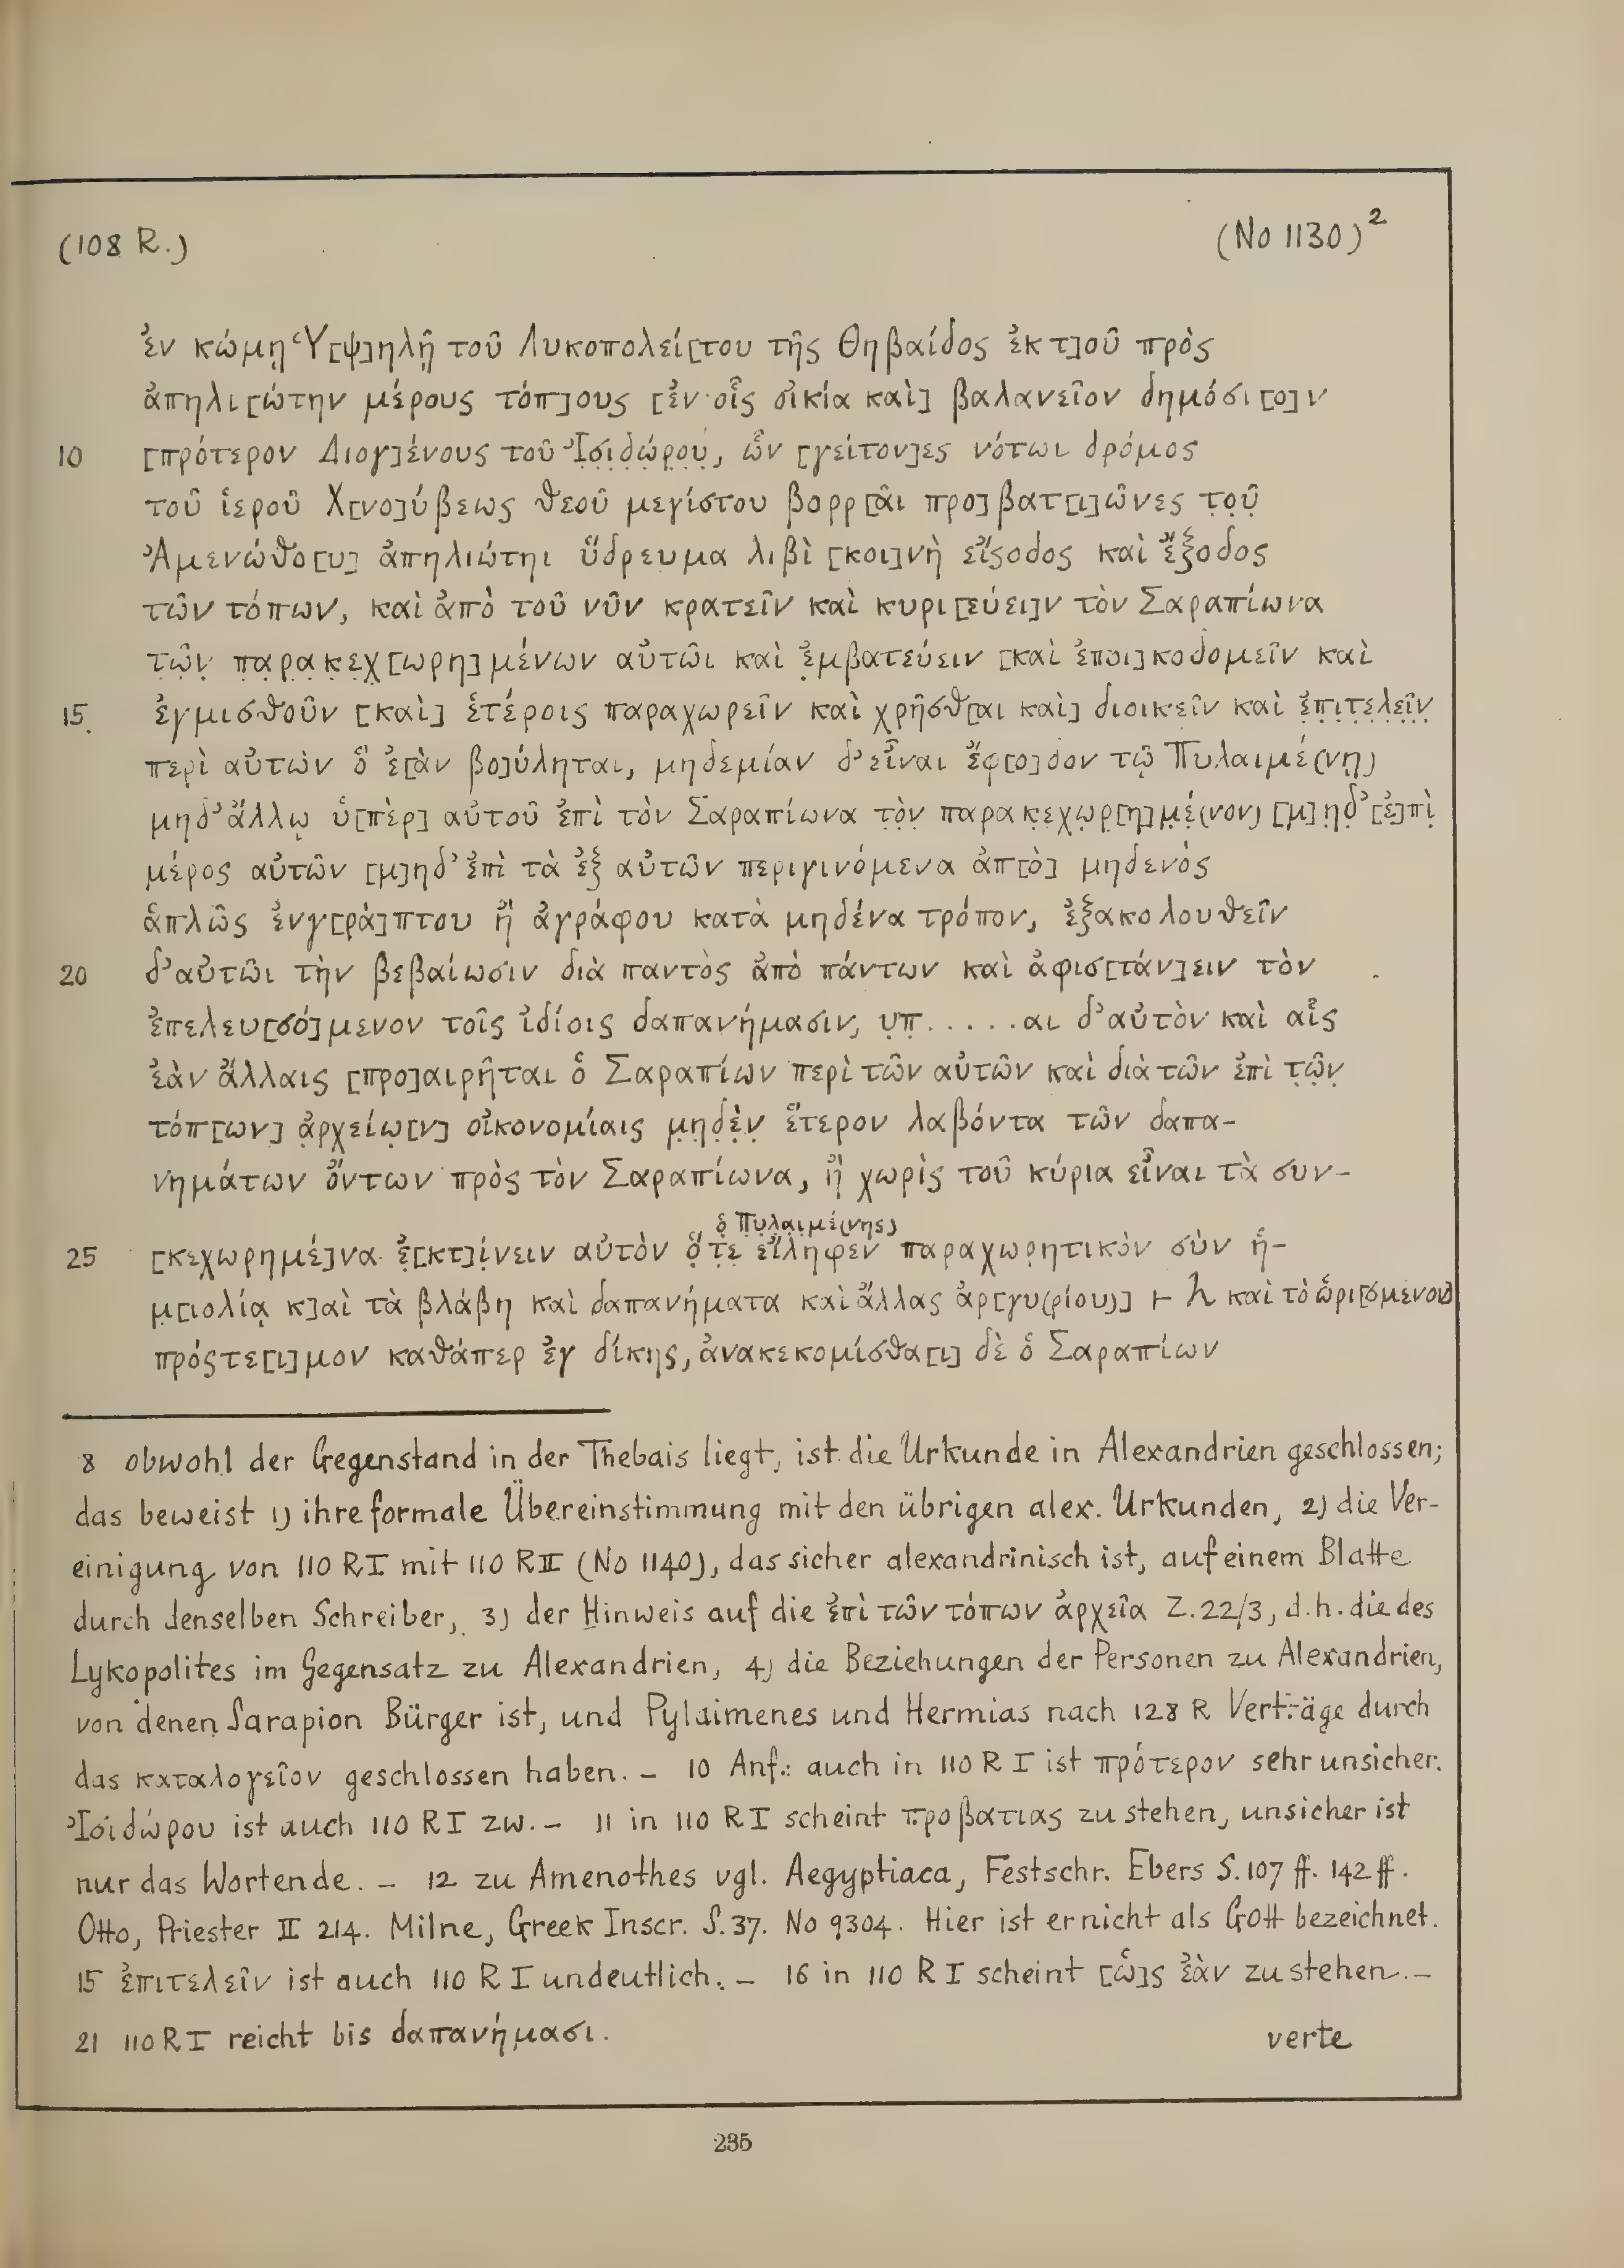 (108 R.) (No 1130)²
ἐν κώμῃ Ὑ[ψ]ηλῇ τοῦ Λυκοπολεί[του τῆς Θηβαίδος ἐκ τ]οῦ πρὸς
ἀπηλι[ώτην μέρους τόπ]ους [ἐν οἷς οἰκία καὶ] βαλανεῖον δημόσι[ο]ν
10 [πρότερον Διογ]ένους τοῦ Ἰ̣σ̣ι̣δ̣ώ̣ρ̣ο̣υ̣, ὧν [γείτον]ες νότωι δρόμος
τοῦ ἱεροῦ Χ[νο]ύβεως θεοῦ μεγίστου βορρ[ᾶι προ]βατ[ι]ῶνες τ̣ο̣ῦ̣
Ἀμενώθο[υ] ἀπηλιώτηι ὕδρευμα λιβὶ [κοι]νὴ εἴσοδος καὶ ἔξοδος
τῶν τόπων, καὶ ἀπὸ τοῦ νῦν κρατεῖν καὶ κυρι[εύει]ν τὸν Σαραπίωνα
τ̣ῶ̣ν̣ π̣α̣ρ̣α̣κ̣ε̣χ̣[ωρη]μένων αὐτῶι καὶ ἐ̣μβατεύειν [καὶ ἐποι]κοδομεῖν καὶ
15. ἐγμισθοῦν [καὶ] ἑτέροις παραχωρεῖν καὶ χρῆσθ[αι καὶ] διοικεῖν καὶ ἐ̣π̣ι̣τ̣ε̣λ̣ε̣ῖ̣ν̣
περὶ αὐτῶν ὃ ἐ[ὰν βο]ύληται, μηδεμίαν δ’εἶναι ἔφ[ο]δον τῷ Πυλαιμέ(νῃ)
μηδ’ἄλλῳ ὑ[πὲρ] αὐτοῦ ἐπὶ τὸν Σαραπίωνα τ̣ὸ̣ν̣ παρακ̣ε̣χ̣ω̣ρ̣[η]μ̣έ̣(νον) [μ]η̣δ̣’[ἐ]πὶ̣
μ̣έρος αὐτῶν [μ]ηδ’ἐπὶ τὰ ἐξ αὐτῶν περιγινόμενα ἀπ[ὸ] μηδενὸς
ἁπλῶς ἐνγ[ρά]πτου ἢ ἀγράφου κατὰ μηδένα τρόπον, ἐξακολουθεῖν
20 δ’αὐτῶι τὴν βεβαίωσιν διὰ παντὸς ἀπὸ πάντων καὶ ἀφισ[τάν]ειν τὸν
ἐπελευ[σό]μενον τοῖς ἰδίοις δαπανήμασιν, υ̣π̣.....αι δ’αὐτὸν καὶ αἷς
ἐὰν ἄλλαις [προ]αιρῆται ὁ Σαραπίων περὶ τῶν αὐτῶν καὶ διὰ τῶν ἐπὶ τ̣ῶ̣ν̣
τόπ[ων] ἀ̣ρχείω̣[ν] οἰκονομίαις μ̣η̣δ̣ὲ̣ν̣ ἕτερον λαβόντα τῶν δαπα-
νημάτων ὄντων πρὸς τὸν Σαραπίωνα, ἢ χωρὶς τοῦ κύρια εἶναι τὰ συν-
ὁ̣ Π̣υ̣λ̣α̣ι̣μέ(νης)
25 [κεχωρημέ]να ἐ̣[κτ]ί̣νειν αὐτὸν ὅ̣τ̣ε̣ εἴληφεν παραχωρητικὸν σὺν ἡ-
μ̣[ιολίᾳ κ]αὶ τὰ βλάβη καὶ δαπανήματα καὶ ἄλλας ἀρ[γυ(ρίου)] ⊢ λ καὶ τὸ ὡρι[σμένον]
πρόςτε[ι]μον καθάπερ ἐγ δίκης, ἀνακεκομίσθα[ι] δὲ ὁ Σαραπίων
8 obwohl der Gegenstand in der Thebais liegt, ist die Urkunde in Alexandrien geschlossen;
das beweist 1) ihre formale Übereinstimmung mit den übrigen alex. Urkunden, 2) die Ver-
einigung von 110 R I mit 110 R II (No 1140), das sicher alexandrinisch ist, auf einem Blatte
durch denselben Schreiber, 3) der Hinweis auf die ἐπὶ τῶν τόπων ἀρχεῖα Z. 22/3, d.h. die des
Lykopolites im Gegensatz zu Alexandrien, 4) die Beziehungen der Personen zu Alexandrien,
von denen Sarapion Bürger ist, und Pylaimenes und Hermias nach 128 R Verträge durch
das καταλογεῖον geschlossen haben. – 10 Anf.: auch in 110 R I ist πρότερον sehr unsicher.
Ἰσιδώρου ist auch 110 R I zw. – 11 in 110 R I scheint προβατιας zu stehen, unsicher ist
nur das Wortende. – 12 zu Amenothes vgl. Aegyptiaca, Festschr. Ebers S. 107 ff. 142 ff.
Otto, Priester II 214. Milne, Greek Inscr. S. 37. No 9304. Hier ist er nicht als Gott bezeichnet.
15 ἐπιτελεῖν ist auch 110 R I undeutlich. – 16 in 110 R I scheint [ὡ]ς ἐὰν zu stehen. –
21 110 R I reicht bis δαπανήμασι. verte
235